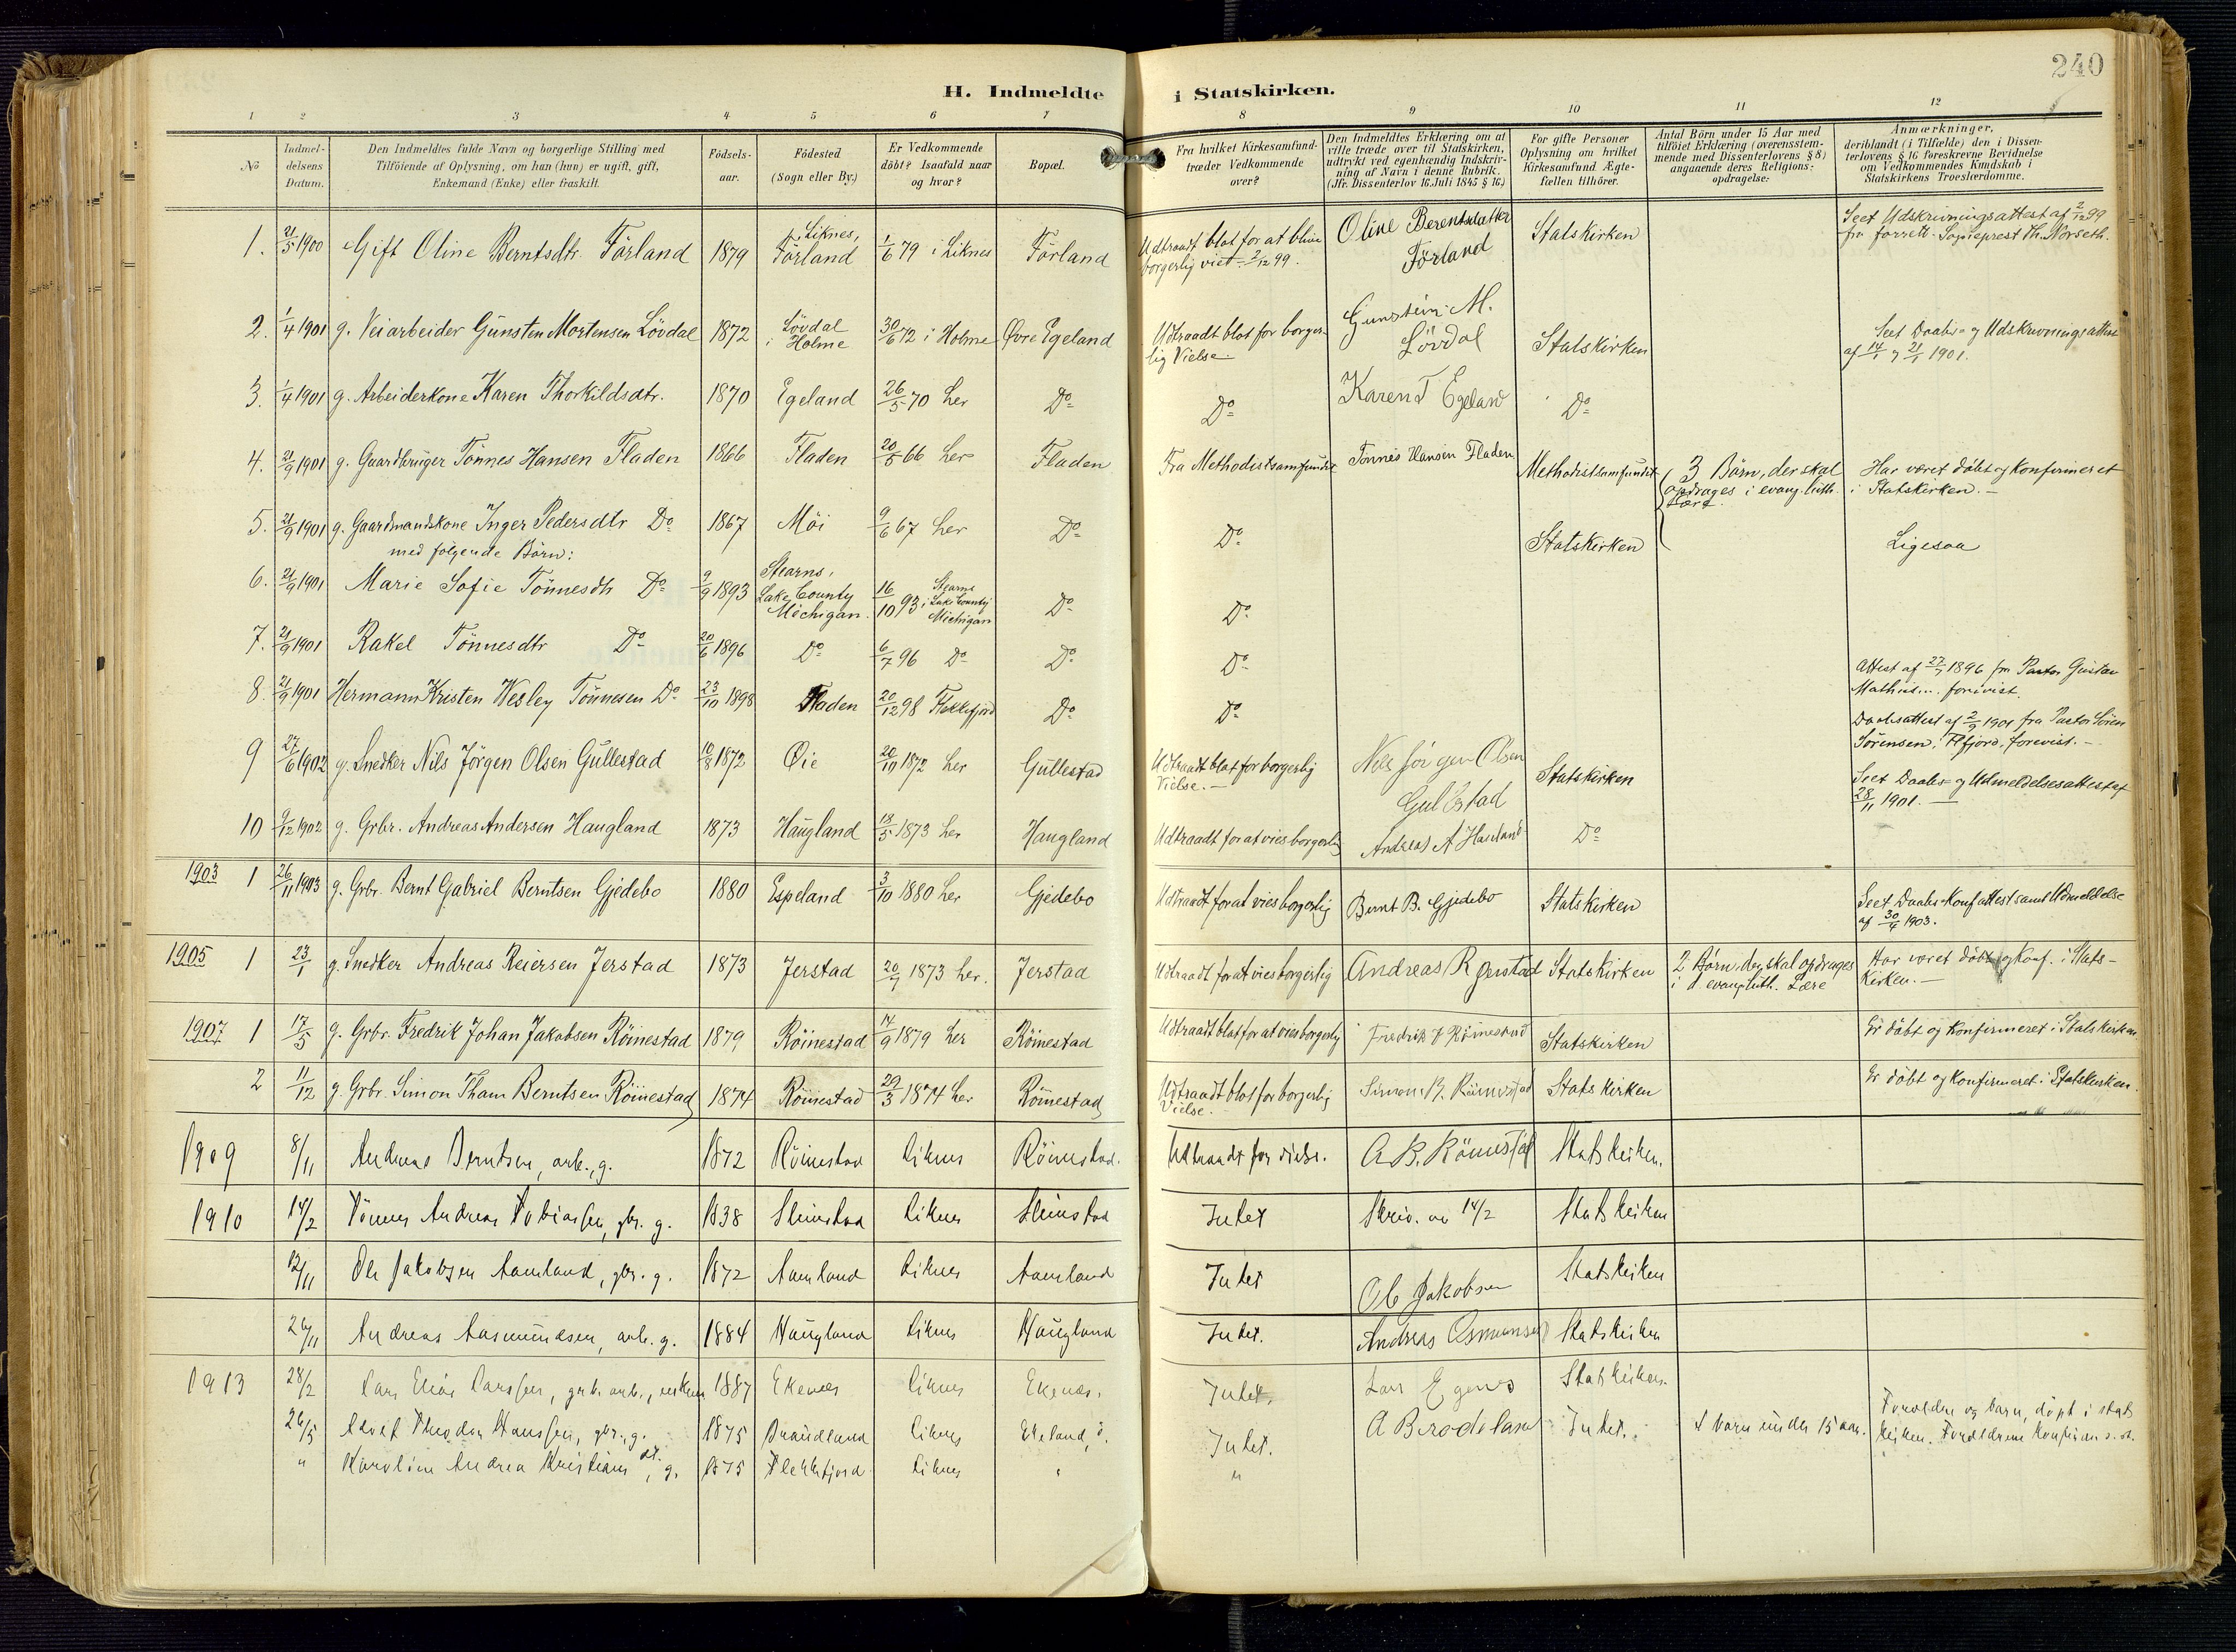 240
H. Indmeldte i Statskirken.
1 2 3 4 5 6 7 8 9 10 11 12
No
Indmel-
delsens
Datum.
Den Indmeldtes fulde Navn og borgerlige Stilling med
Tilföiende af Oplysning, om han (hun) er ugift, gift,
Enkemand (Enke) eller fraskilt.
Födsels-
aar.
Födested
(Sogn eller By.)
Er Vedkommende
döbt? Isaafald naar
og hvor?
Bopæl.
Fra hvilket Kirkesamfund-
træder Vedkommende
over?
Den Indmeldtes Erklæring om at
ville træde over til Statskirken,
udtrykt ved egenhændig Indskriv-
ning af Navn i denne Rubrik.
(Jfr. Dissenterlov 16 Juli 1845 § 16.)
For gifte Personer
Oplysning om hvilket
Kirkesamfund Ægte-
fællen tilhörer.
Antal Börn under 15 Aar med
tilföiet Erklæring (overensstem-
mende med Dissenterlovens § 8)
angaaende deres Religions-
opdragelse.
Anmærkninger,
deriblandt (i Tilfælde) den i Dissen-
terlovens § 16 foreskrevne Bevidnelse
om Vedkommendes Kundskab i
Statskirkens Troeslærdomme.
1. 21/5 1900 Gift Oline Berntsdtr. Förland 1879 Liknes, Förland 1/6 79 i Liknes Förland Udtraadt blot for at blive borgerlig viet 2/12 99. Oline Berentsdatter Förland Statskirken Seet Udskrivningsattest af 2/12 99 fra forrett. Sogneprest Th. Norseth.
2. 1/4 1901 g. Veiarbeider Gunsten Mortensen Lövdal 1872 Lövdal i Holme 30/6 72 i Holme Övre Egeland Udtraadt blot for borgerlig Vielse. Gunstein M. Lövdal Statskirken Seet Daabs- og Udskrivningsattest af 14/1 og 21/1 1901.
3. 1/4 1901 g. Arbeiderkone Karen Thorkildsdtr. 1870 Egeland 26/5 70 her Do Do Karen T Egeland Do
4. 21/9 1901 g. Gaardbruger Tönnes Hansen Fladen 1866 Fladen 20/5 66 her Fladen Fra Methodistsamfundet Tönnes Hansen Fladen Methodistsamfundet 3 Börn, der skal opdrages i evang. luth. Lære. Har været döbt og Konfirmeret i Statskirken.
5. 21/9 1901 g. Gaardmandskone Inger Pedersdtr Do 1867 Möi 9/6 67 her Do Do Statskirken Ligesaa
med fölgende Börn:
6. 21/9 1901 Marie Sofie Tönnesdtr Do 9/9 1893 Stearns, Lake County Michigan. 16/10 93 i Stearns Lake County Michigan Do Do
7. 21/9 1901 Rakel Tönnesdtr Do 20/6 1896 Do 6/7 96 Do Do Do Attest af 27/7 1896 fra Pastor Gustav forevist.
8. 21/9 1901 Hermann Kristen Wesley Tönnesen Do 23/10 1898 Fladen 20/12 98 Flekkefjord Do Do Daabsattest af 2/9 1901 fra Pastor Sören Sörensen, Ffjord, forevist.
9 27/6 1902 g. Snedker Nils Jörgen Olsen Gullestad 10/8 1872 Öie 20/10 1872 her Gullestad Udtraadt blot for borgerlig Vielse. Nils Jörgen Olsen Gullestad Statskirken Seet Daabs- og Udmeldelsesattest af 28/11 1901.
10 9/12 1902 g. Grbr. Andreas Andersen Haugland 1873 Haugland 18/5 1873 her Haugland Udtraadt for at vies borgerlig Andreas A Haugland Do
1903 1 26/11 1903 g. Grbr. Bernt Gabriel Berntsen Gjedebo 1880 Espeland 3/10 1880 her Gjedebo Udtraadt for at vies borgerlig Bernt B. Gjedebo Statskirken Seet Daabs-Konf attest samt Udmeldelse af 30/9 1903.
1905 1 23/1 g. Snedker Andreas Reiersen Jerstad 1873 Jerstad 20/7 1873 her. Jerstad Udtraadt for at vies borgerlig Andreas R Jerstad Statskirken 2 Börn, der skal opdrages i evang. luth. Lære Har været döbt og Konf. i Stats-kirken.
1907 1 17/5 g. Grbr. Fredrik Johan Jakobsen Röinestad 1879 Röinestad 14/9 1879 her Röinestad Udtraadt blot for at vies borgerlig Fredrik J Röinestad Statskirken Er döbt og Konfirmeret i Statskirken
2 11/12 g. Grbr. Simon Tham Berntsen Röinestad 1874 Röinestad 29/3 1874 her Röinestad Udtraadt blot for borgerlig Vielse. Simon B. Röinestad Statskirken Er döbt og Konfirmeret i Statskirken.
1909 8/11 Andreas Berntsen, arb., g. 1872 Röinestad Liknes Röinestad. Udtraadt for vielse. A. B. Röinestad Statskirken.
1910 14/2 Tönnes Andreas Tobiassen, gbr. g. 1838 Sleinstad Liknes Sleinstad Intet Skriv. av 14/2 Statskirken
12/11 Ole Jakobsen Aamland, gbr. g. 1872 Aamland Liknes Aamland Intet Ole Jakobsen Statskirken
26/11 Andreas Aasmundsen, arb. g. 1884 Haugland Liknes Haugland Intet. Andreas Osmunsen Statskirken
1913 28/2 Lars Elias Larssen, 1887 Ekenes Liknes Ekenes. Intet. Lars Egenes Statskirken.
26/5 Adolf Theodor Hanssen, gbr., g. 1875 Liknes Ekeland, ö. Intet. Intet. 4 barn under 15 aar. Foreldre og barn, döpt i stats kirken. Foreldrene konfirm. s. st.
" Karoline Andrea Kristians dt., g. 1875 Flekkefjord Liknes " "